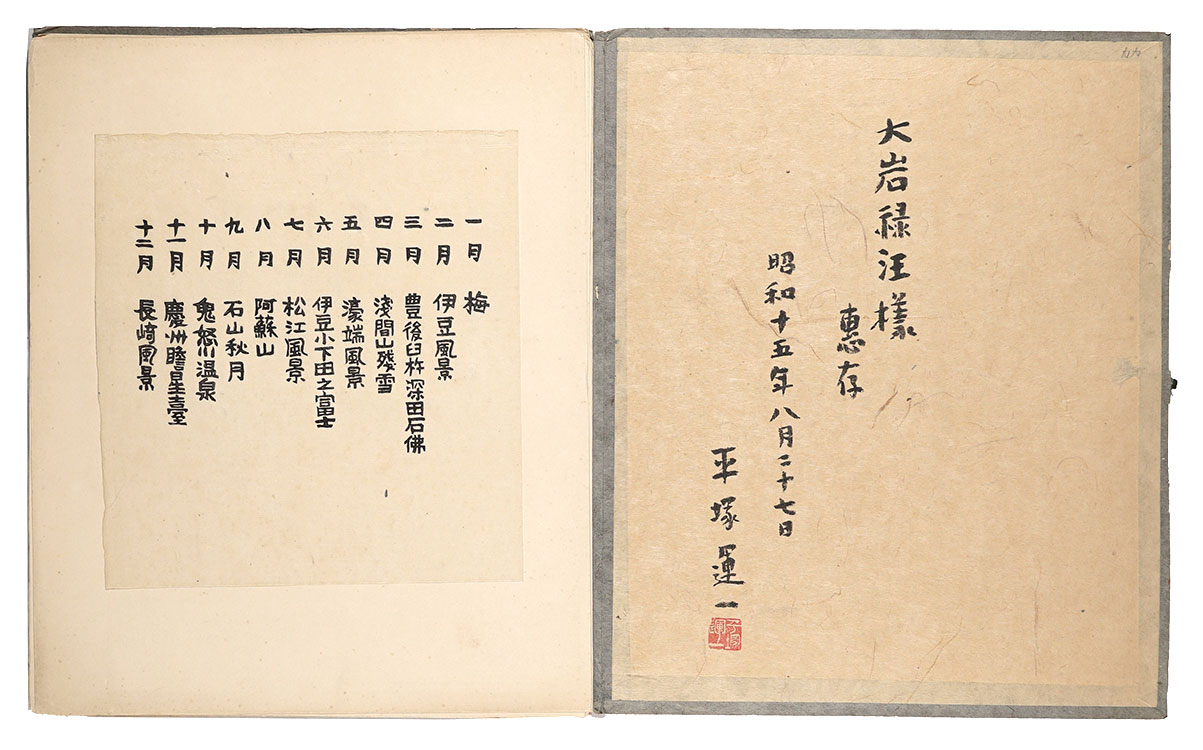 大岩禄汪様
恵存
昭和十五年八月二十七日
平塚運一
平塚運一
一月 梅
二月 伊豆風景
三月 豊後臼杵深田石佛
四月 淺間山残雪
五月 濠端風景
六月 伊豆小下田之富士
七月 松江風景
八月 阿蘇山
九月 石山秋月
十月 鬼怒川温泉
十一月 慶州瞻星臺
十二月 長崎風景